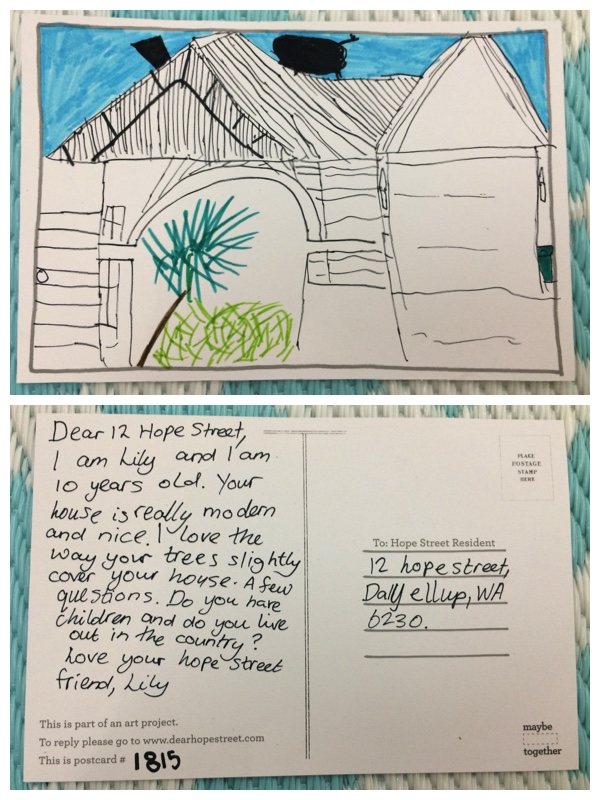 Dear 12 Hope Street,
I am Lily and I am
10 years old. Your
house is really modern
and nice. I love the
way your trees slightly
cover your house. A few
questions. Do you have
children and do you live
out in the country?
Love your hope street
friend, Lily
This is part of an art project.
To reply please go to www.dearhopestreet.com
This is postcard # 1815
PLACE
POSTAGE
STAMP
HERE
To: Hope Street Resident
12 hope street,
Dallyellup, WA
6230.
maybe
together